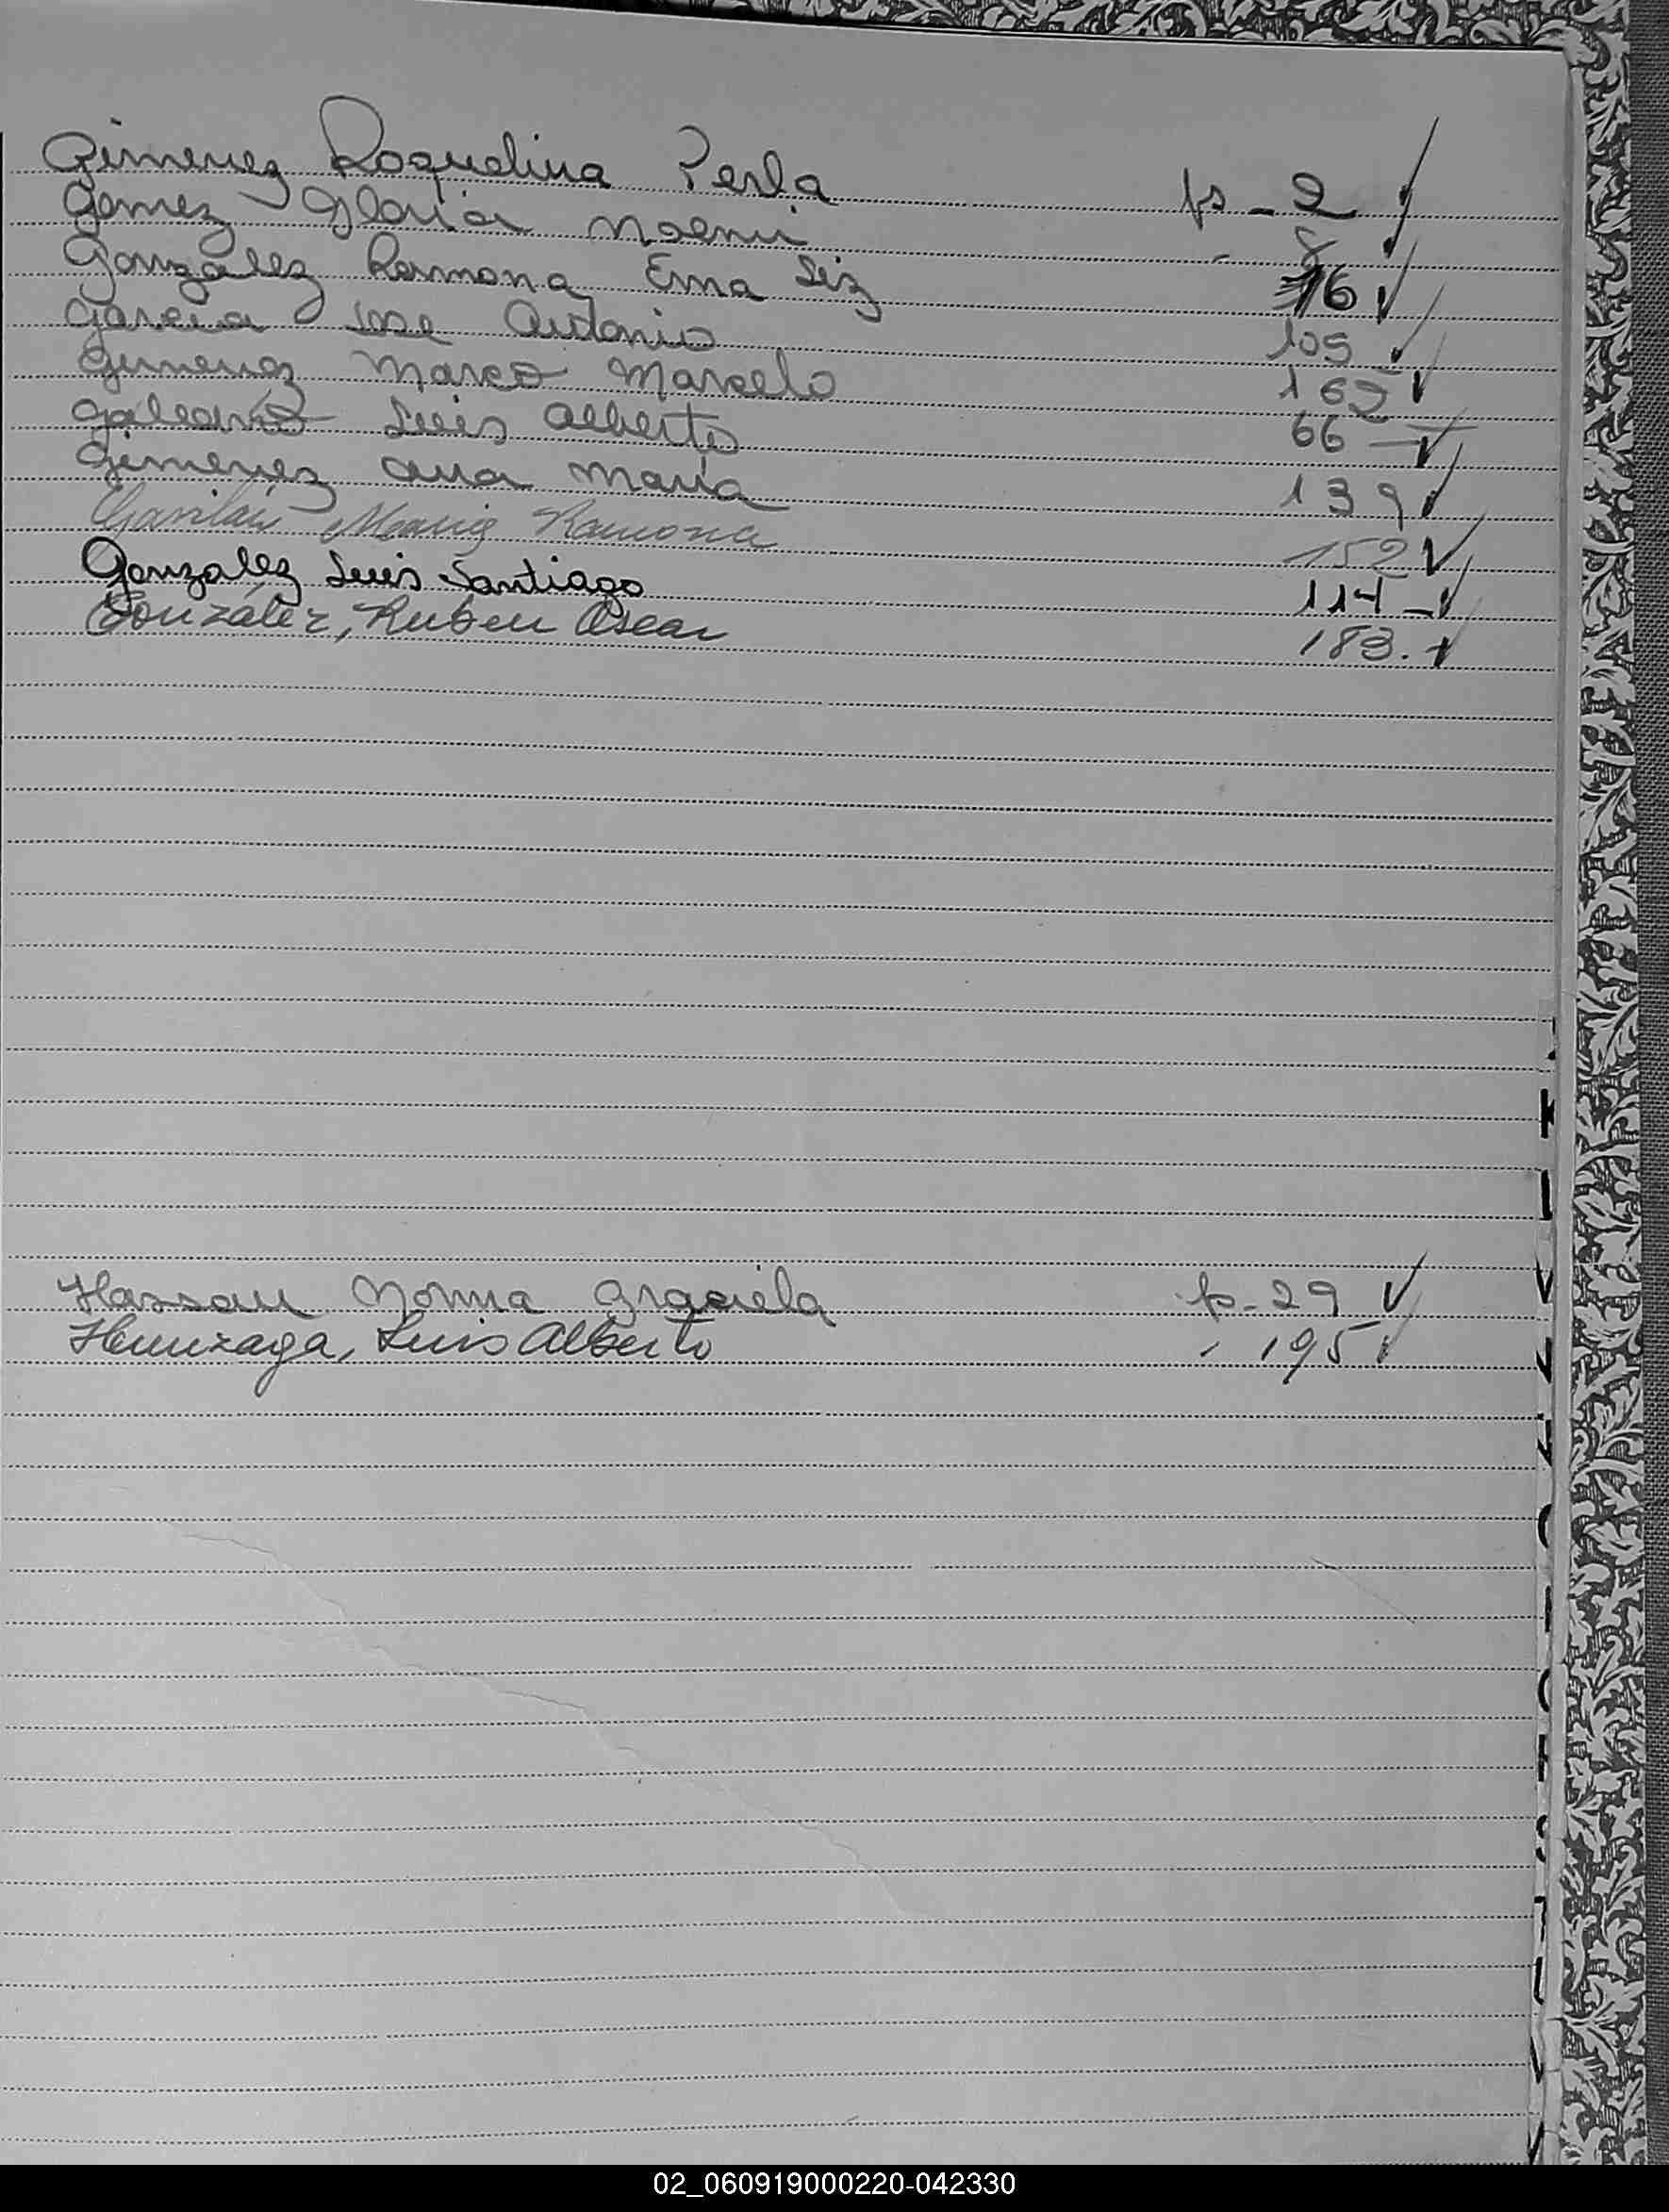 Gimenez Roquelina Perla ps - 2
Gomez Gloria Noemi " 8
Gonzalez Ramona Ema Liz 16
Garcia Jose Antonio 105
Gimenez Marco Marcelo 162
Galeano Luis Alberto 66 -
Gimenez Ana Maria 139
Gavilán Maria Ramona 152
Gonzalez Luis Santiago 114 -
González, Ruben Oscar 183. -
Hassan Norma Graciela p - 29
Hunzaga, Luis Alberto " 195
02_060919000220-042330